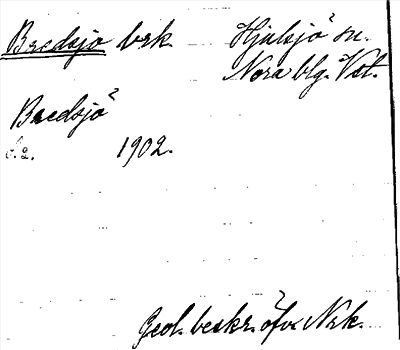 Bredsjö brk. Hjulsjö sn.
Nora blg. Vstm.
Bredsjö
S. 2. 1902.
Geol. beskr. öfv. Nrk.